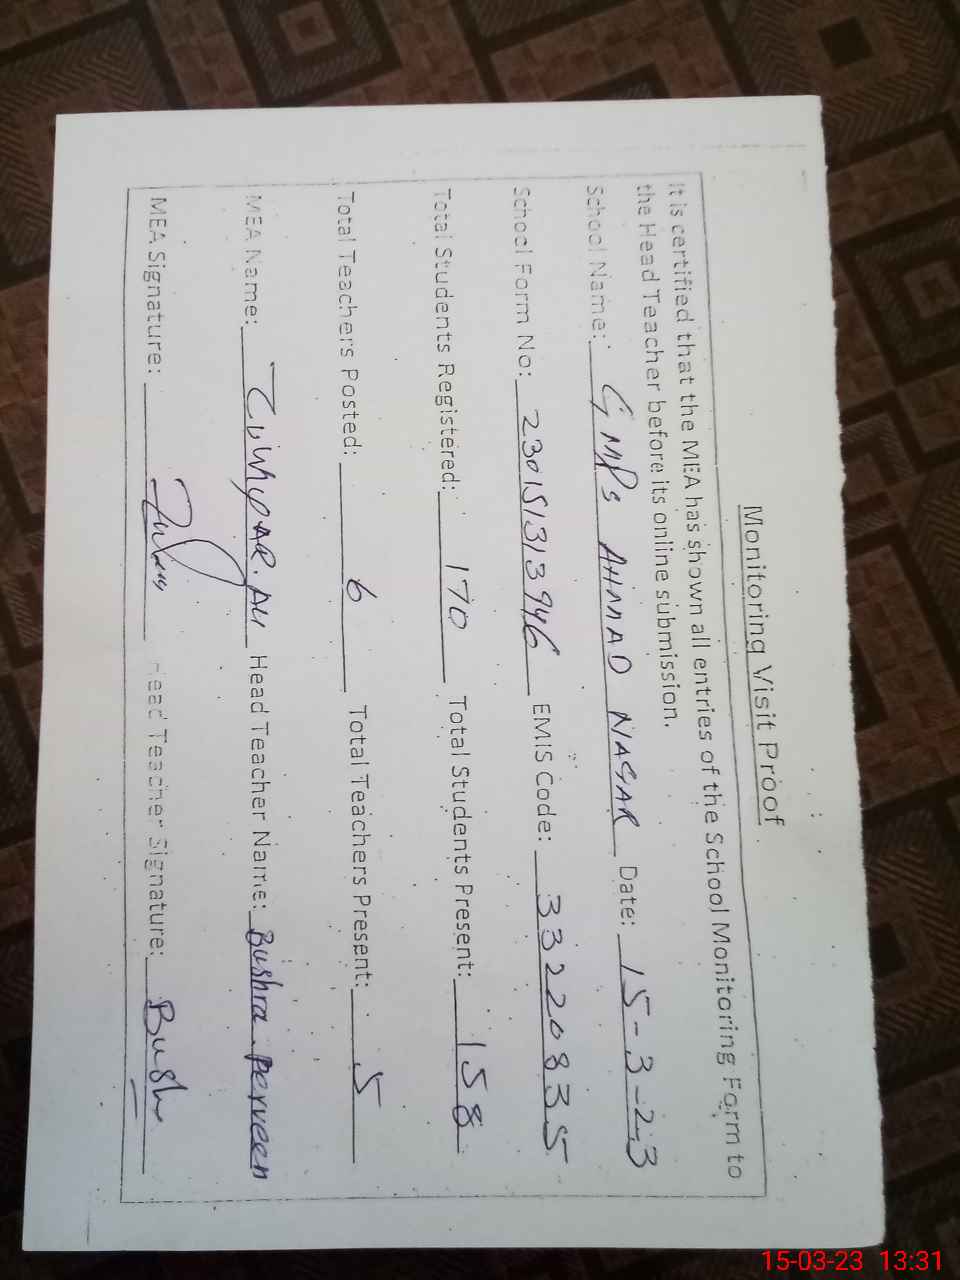 Monitoring Visit Proof
It is certified that the MEA has shown all entries of the School Monitoring Form to
the Head Teacher before its online submission.
School Name: GMPS AHMAD NAGAR Date: 15-3-23
School Form No: 230151313946 EMIS Code: 33220835
Total Students Registered: 170 Total Students Present: 158
Total Teachers Posted: 6 Total Teachers Present: 5
MEA Name: Head Teacher Name: Bushra Perveen
MEA Signature: Head Teacher Signature: Bush
15-03-23 13:31